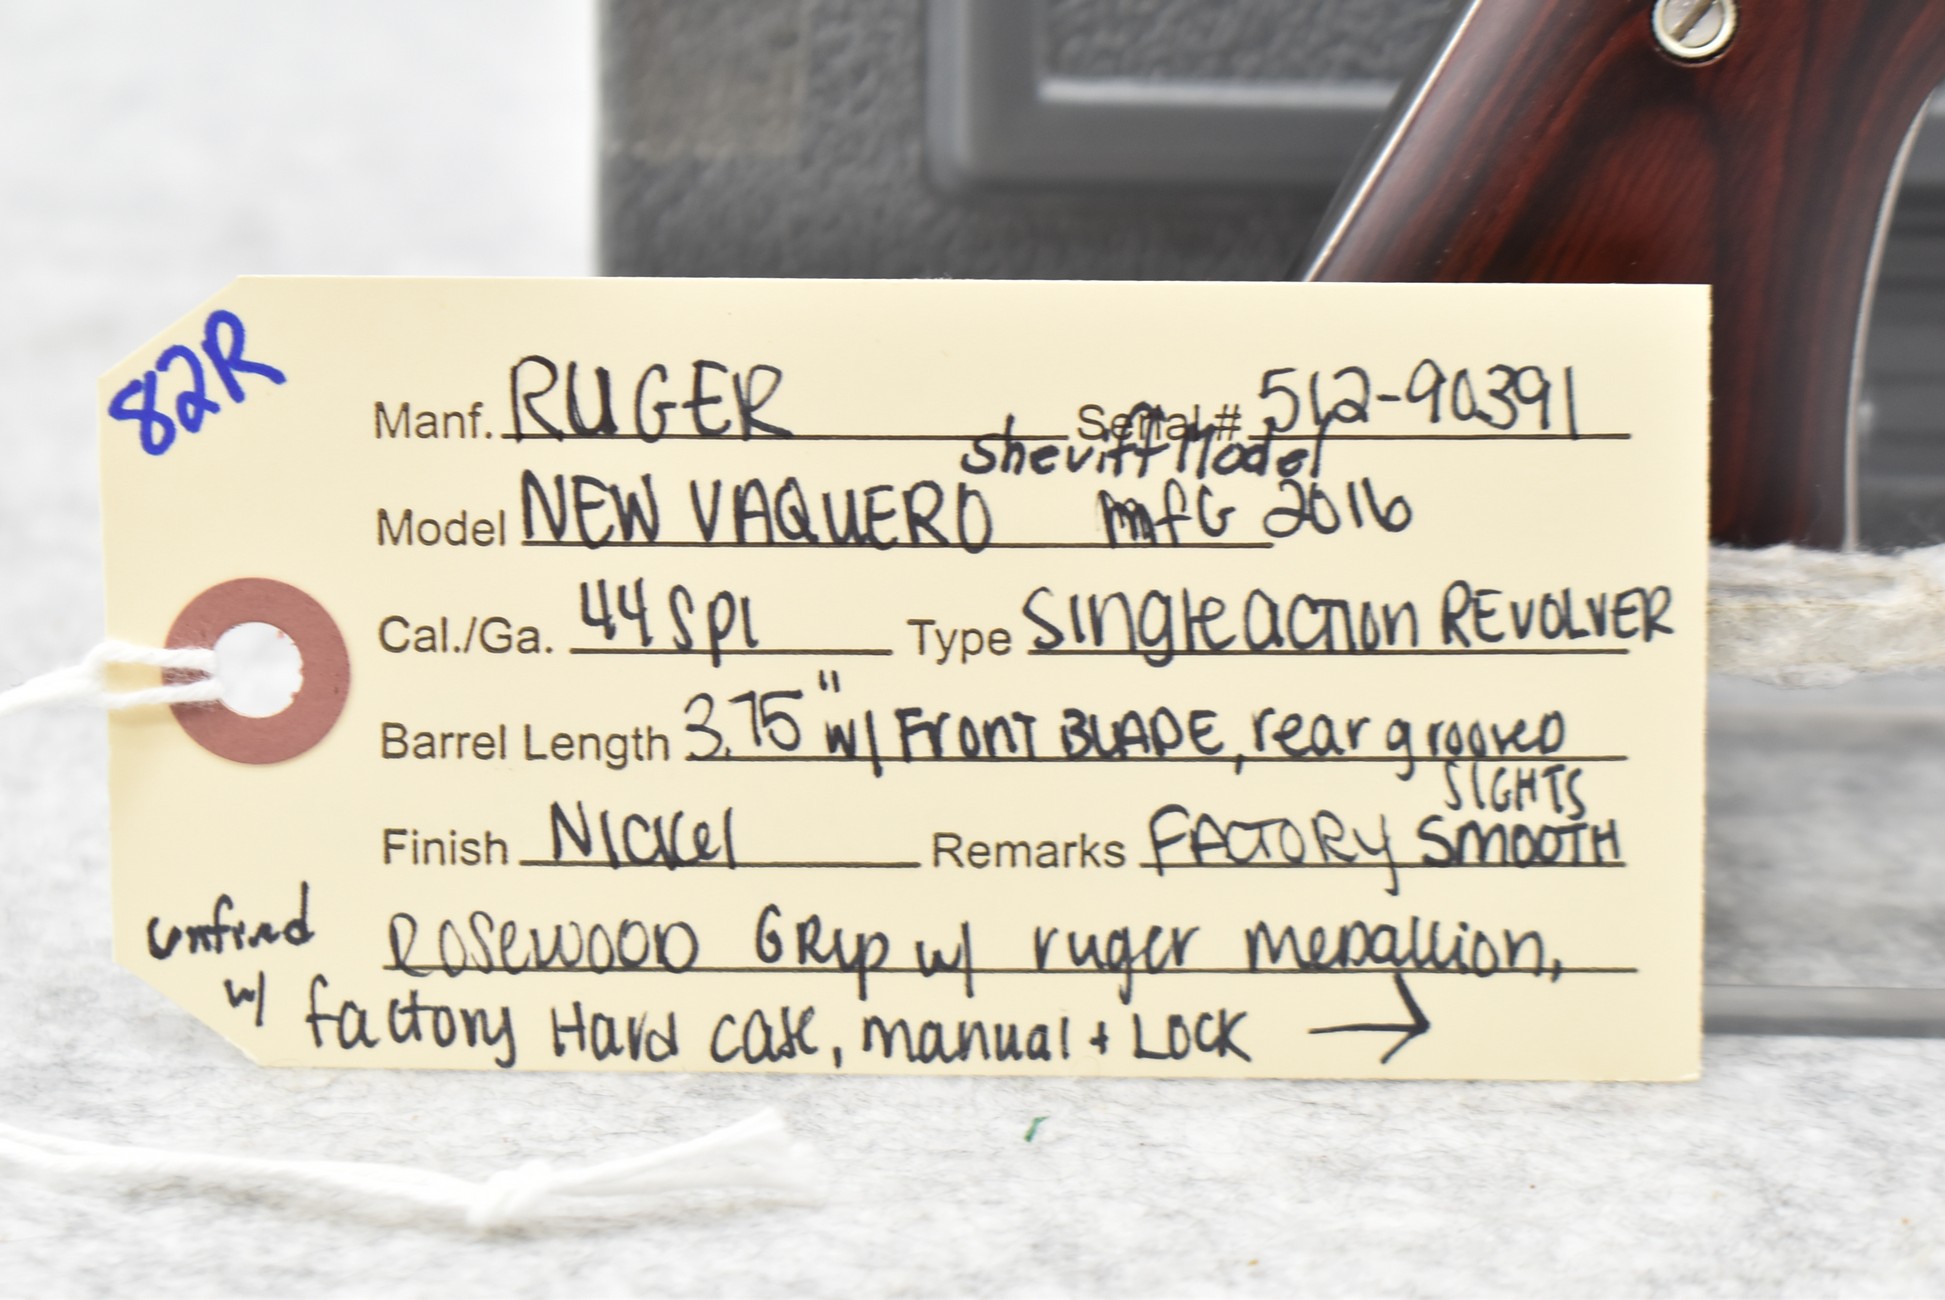 82R
Manf. RUGER Serial # 512-90391
Sheriff Model
Model NEW VAQUERO mfG 2016
Cal./Ga. 44 Spl Type Single action REVOLVER
Barrel Length 3.75" w/ Front BLADE, rear grooved
SIGHTS
Finish Nickel Remarks FACTORY SMOOTH
Rosewood Grip w/ ruger medallion,
w/ factory Hard case, manual + LOCK →